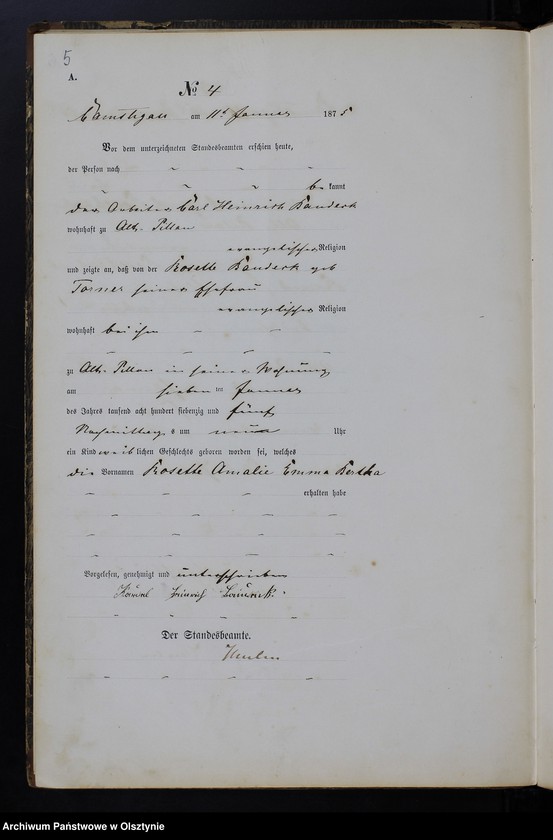 5
A.
№ 4
Camstigall am 11t Januar 1875
Vor dem unterzeichneten Standesbeamten erschien heute,
der Person nach
bekannt
der Arbeiter Carl Heinrich
wohnhaft zu Alt-Pillau
evangelischer Religion
und zeigte an, daß von der Rosette geb
Torner seiner Ehefrau
evangelischer Religion
wohnhaft bei ihm
zu Alt-Pillau in seiner Wohnung
am sieben ten Januar
des Jahres tausend acht hundert siebenzig und fünf
Nachmittags um neun Uhr
ein Kind weiblichen Geschlechts geboren worden sei, welches
die Vornamen Rosette Amalie Emma Bertha
erhalten habe
Vorgelesen, genehmigt und unterschrieben
Heinrich
Der Standesbeamte.
Archiwum Państwowe w Olsztynie